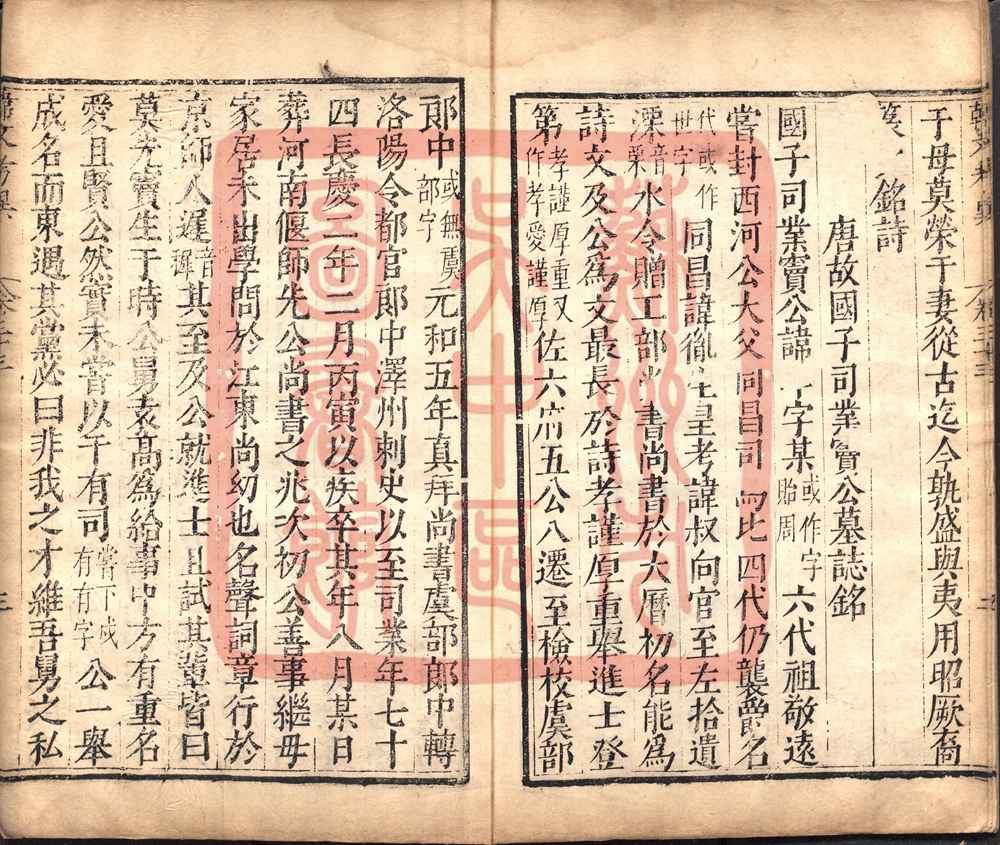 于母莫榮于妻從古迄今孰盛與夷用昭厥裔
銘詩
唐故國子司業竇公墓誌銘
國子司業竇公諱牟字某或作字貽周六代祖敬遠
嘗封西河公大父同昌司馬比四代仍襲爵名
代或作世字同昌諱胤生皇考諱叔向官至左拾遺
溧音栗水令贈工部尚書尚書於大曆初名能爲
詩文及公爲文最長於詩孝謹厚重舉進士登
第孝謹厚重又作孝愛謹厚佐六府五公八遷至檢校虞部
郎中或無虞部字元和五年真拜尚書虞部郎中轉
洛陽令都官郎中澤州刺史以至司業年七十
四長慶二年二月丙寅以疾卒其年八月某日
葬河南偃師先公尚書之兆次初公善事繼母
家居未出學問於江東尚幼也名聲詞章行於
京師人遲音稚其至及公就進士且試其輩皆曰
莫先竇生于時公舅袁高爲給事中方有重名
愛且賢公然實未嘗以干有司嘗下或有有字公一舉
成名而東遇其黨必曰非我之才維吾舅之私